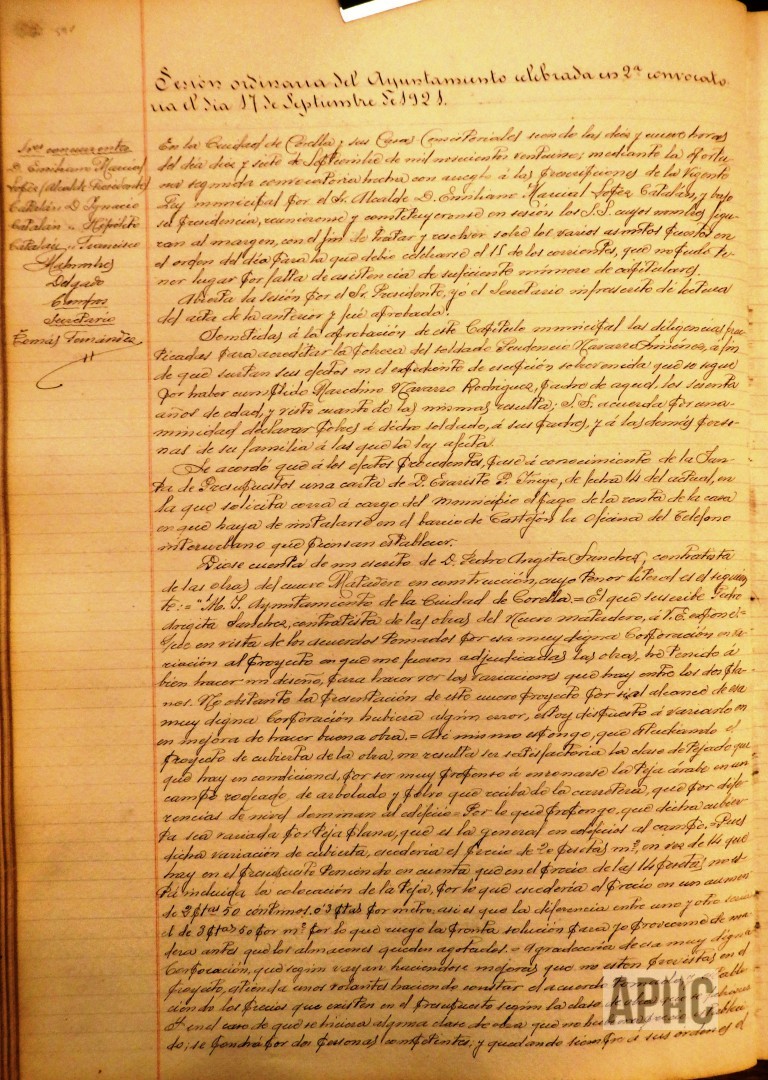 Sesión ordinaria del Ayuntamiento celebrada en 2ª convocato
ria el día 17 de Septiembre de 1921.
Sres concurrentes
D. Emiliano Marcial
López (Alcalde Presidente)
Catalán D. Ignacio
Catalán " Hipólito
Catalán " Francisco
Malumbres
Delgado
Secretario
Tomás Fernández
En la Ciudad de Corella y sus Casas Consistoriales siendo las diez y nueve horas
del día diez y siete de Septiembre de mil novecientos veintiuno; mediante la oportu
na segunda convocatoria hecha con arreglo á las prescripciones de la vigente
Ley municipal por el Sr. Alcalde D. Emiliano Marcial López Catalán, y bajo
su presidencia, reunieronse y constituyeronse en sesión los S.S. cuyos nombres figu
ran al margen, con el fin de tratar y resolver sobre los varios asuntos puestos en
el orden del día para la que debió celebrarse el 15 de los corrientes, que no pudo te
ner lugar por falta de asistencia de suficiente número de capitulares.
Abierta la sesión por el Sr. Presidente, yo el Secretario infrascrito dí lectura
del acta de la anterior y fué aprobada.
Sometidas á la aprobación de este Capítulo municipal las diligencias prac
ticadas para acreditar la pobreza del soldado Navarro Jiménez, á fin
de que surtan sus efectos en el expediente de excepción sobrevenida que se sigue
por haber cumplido Marcelino Navarro Rodriguez, padre de aquel, los sesenta
años de edad, y visto cuanto de las mismas resulta; S.S. acuerda por una-
nimidad declarar pobres á dicho soldado, á sus padres, y á las demás perso-
nas de su familia á las que la ley afecta.
Se acordó que á los efectos procedentes, pase á conocimiento de la Jun-
ta de Presupuestos una carta de D. Evaristo P. Iñigo, de fecha 14 del actual, en
la que solicita corra á cargo del municipio el pago de la renta de la casa
en que haya de instalarse en el barrio de Castejón la Oficina del Teléfono
interurbano que piensan establecer.
Diose cuenta de un escrito de D. Pedro Angita Sanchez, contratista
de las obras del nuevo Matadero en construcción, cuyo tenor literal es el siguien
te: = "M. I. Ayuntamiento de la Ciudad de Corella. = El que suscribe Pedro
Angita Sanchez, contratista de las obras del Nuevo matadero, á V.E. expone: =
Que en vista de los acuerdos tomados por esa muy digna Corporación en va
riación al proyecto en que me fueron adjudicadas las obras, he tenido á
bien hacer un diseño, para hacer ver las variaciones que hay entre los dos pla-
nos. No obstante la presentación de este nuevo proyecto por si al alcance de esa
muy digna Corporación hubiera algún error, estoy dispuesto á variarlo en
en mejora de hacer buena obra. = Asi mismo expongo, que estudiando el
proyecto de cubierta de la obra, no resulta ser satisfactoria la clase de tejado que
que hay en condiciones, por ser muy propenso á enronarse la teja árabe en un
campo rodeado de arbolado y polvo que reciba de la carretera, que por dife-
rencias de nivel dominan al edificio = Por lo que propongo, que dicha cubier-
ta sea variada por teja plana, que es la general en edificios al campo. = Pues
dicha variación de cubierta, excedería el precio de 20 pesetas m², en vez de 14 que
hay en el presupuesto teniendo en cuenta que en el precio de las 14 pesetas no es
tá incluida la colocación de la teja, por lo que excedería el precio en un aumen
de 2 ptas 50 céntimos. ó 3 ptas por metro, asi es que la diferencia entre uno y otro
de 3 ptas 50 por m² por lo que ruego la pronta solución para yo proveerme de ma
dera antes que los almacenes queden agotados. = Agradecería de esa muy digna
Corporación, que según vayan haciéndose mejoras que no esten previstas en el
proyecto, estienda unos volantes haciendo constar el acuerdo
ciendo los precios que existen en el presupuesto según la clase de
en el caso de que se hiciera alguna clase de obra que no
do; se pondrá por dos personas competentes; y quedando siempre á sus ordenes el
APHC